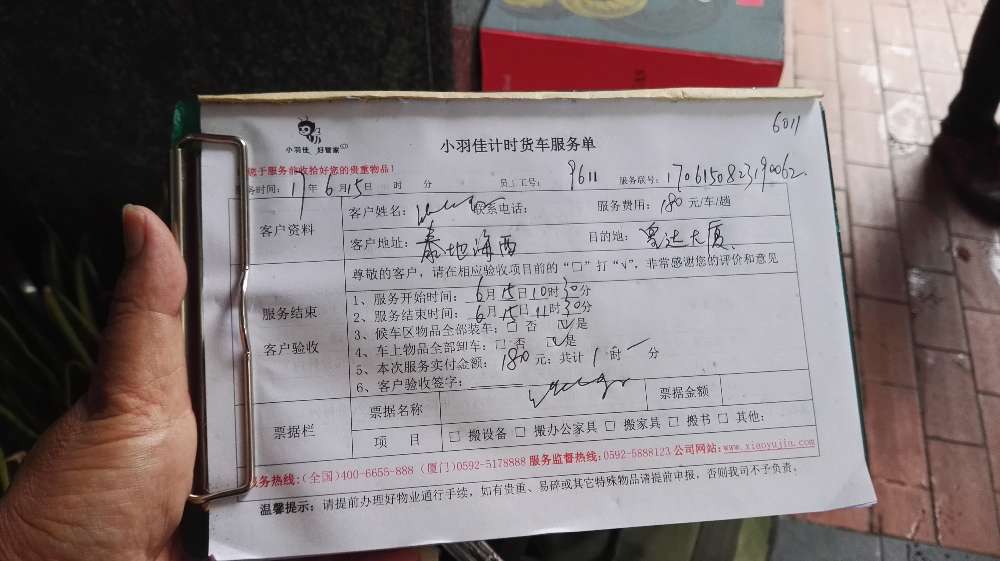 6011
小羽佳 好管家
小羽佳计时货车服务单
于服务前收拾好您的贵重物品!
务时间: 17年 6月 15日 时 分 员工工号: 9611 服务联号: 1706150823190062
客户资料
客户姓名: 联系电话: 服务费用: 180 元/车/趟
客户地址: 泰地海西 目的地: 大厦
尊敬的客户, 请在相应验收项目前的“□”打“√”, 非常感谢您的评价和意见
服务结束
客户验收
1、服务开始时间: 6月 15日 10时 30分
2、服务结束时间: 6月 15日 11时 30分
3、候车区物品全部装车: □ 否 ☑ 是
4、车上物品全部卸车: □ 否 ☑ 是
5、本次服务实付金额: 180 元; 共计 1 时 一 分
6、客户验收签字:
票据栏
票据名称 票据金额
项 目 □ 搬设备 □ 搬办公家具 □ 搬家具 □ 搬书 □ 其他:
服务热线:(全国)400-6655-888 (厦门)0592-5178888 服务监督热线:0592-5888123 公司网站:www.xiaoyujia.com
温馨提示: 请提前办理好物业通行手续, 如有贵重、易碎或其它特殊物品请提前申报, 否则我司不予负责。